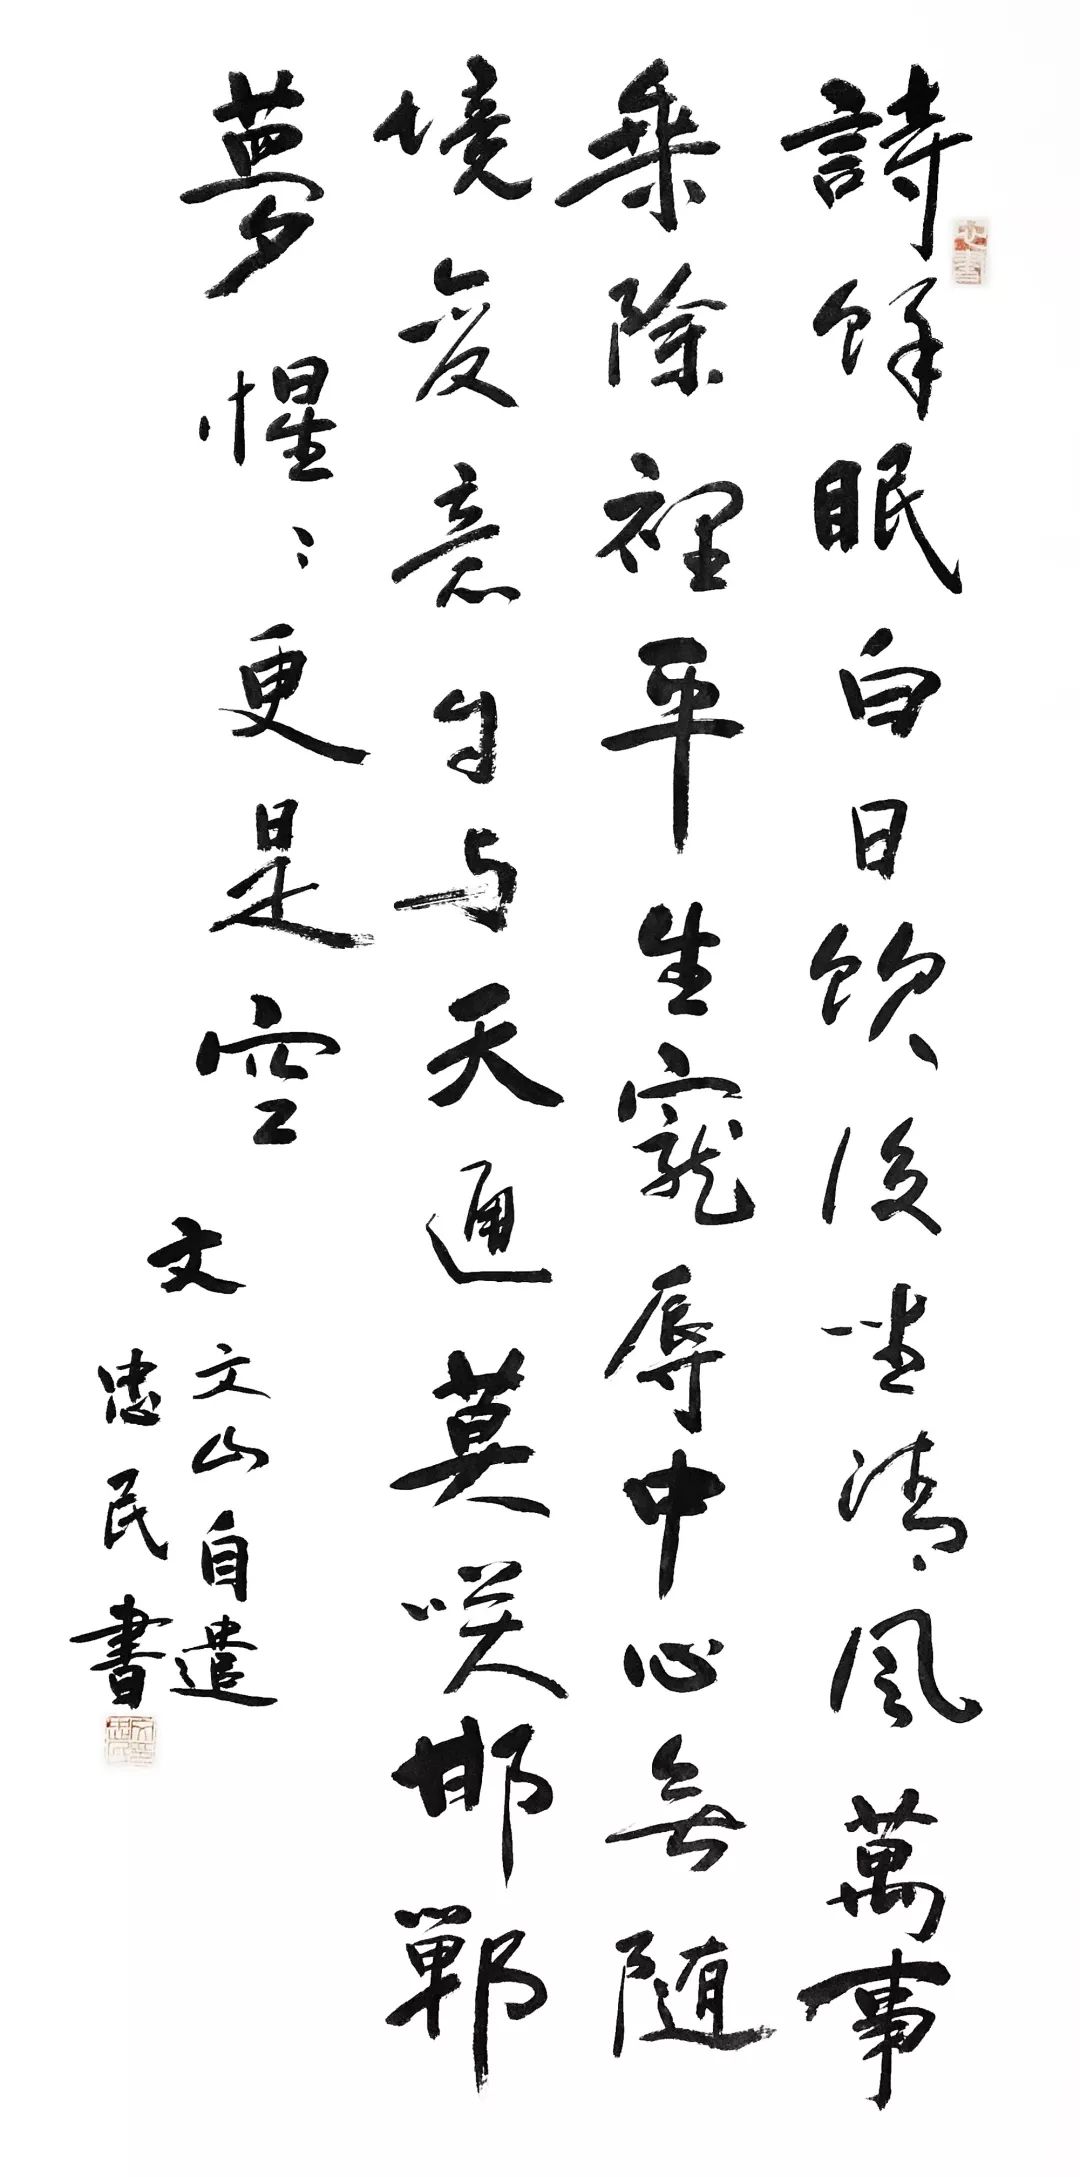 詩餘眠白日飲後坐清風萬事
乘除裡平生寵辱中心無随
境変意自与天通莫咲邯鄲
夢惺〻更是空
文山自遣
文忠民書